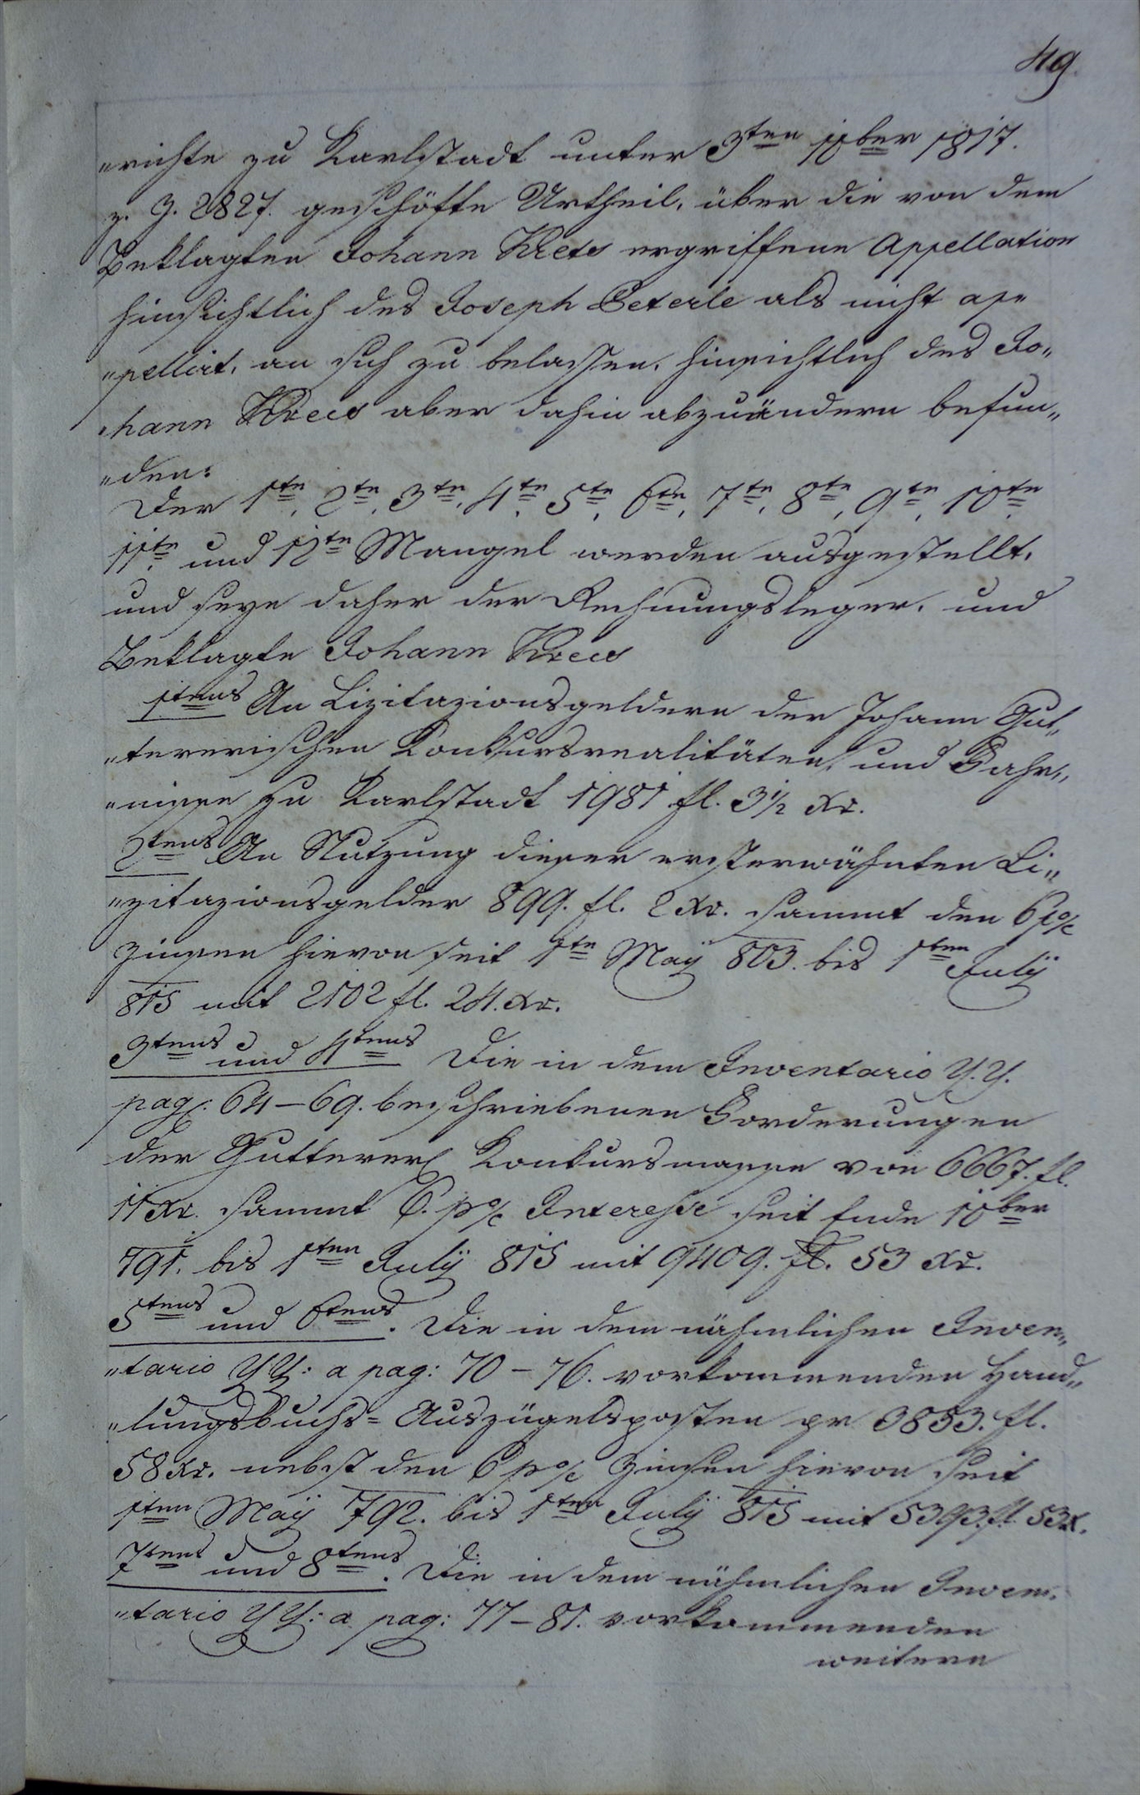 49.
„richte zu Karlstadt unter 3ten 10ber 1817.
z. Z. 2827. geschöfte Urtheil, über die von dem
Beklagten Johann Krees ergriffene Appellation
hinsichtlich des Joseph Peterle als nicht ap„
„pellirt, an sich zu belassen, hinsichtlich des Jo„
„hann Krees aber dahin abzuändern befun„
„den:
Der 1te, 2te, 3te, 4te, 5te, 6te, 7te, 8te, 9te, 10te,
11te, und 12te Mangel werden ausgestellt,
und seye daher der Rechnungsleger, und
Beklagte Johann Krees
1tens An Lizitazionsgeldern der Johann Gut„
„tererischen Konkursrealitäten, und Fahr„
„nisse zu Karlstadt 1981 fl. 3½ Xr.
2tens An Nutzung dieser ersterwähnten Li„
„zitazionsgelder 899. fl. 2 Xr. sammt den 6 p%
Zinsen hievon seit 1te May 803. bis 1ten July
815 mit 2102 fl. 24. Xr.
3tens und 4tens Die in dem Inventario Y. Y.
pag. 64–69. beschriebenen Forderungen
der Gutterer Konkursmasse von 6667. fl.
11 Xr. sammt 6. p% Interesse seit Ende 10ber
791. bis 1ten July 815 mit 9409. fl. 53 Xr.
5tens und 6tens. Die in dem nähmlichen Inven„
„tario YY: a pag: 70–76. vorkommenden Hand„
„lungsbuchs= Auszügelsposten pr 3853. fl.
58 Xr. nebst den 6 p% Zinsen hievon seit
1ten May 792. bis 1ten July 815 mit 5393. fl. 53 X.
7tens und 8tens. Die in dem nähmlichen Inven„
„tario YY: a pag: 77–81. vorkommenden
weitern